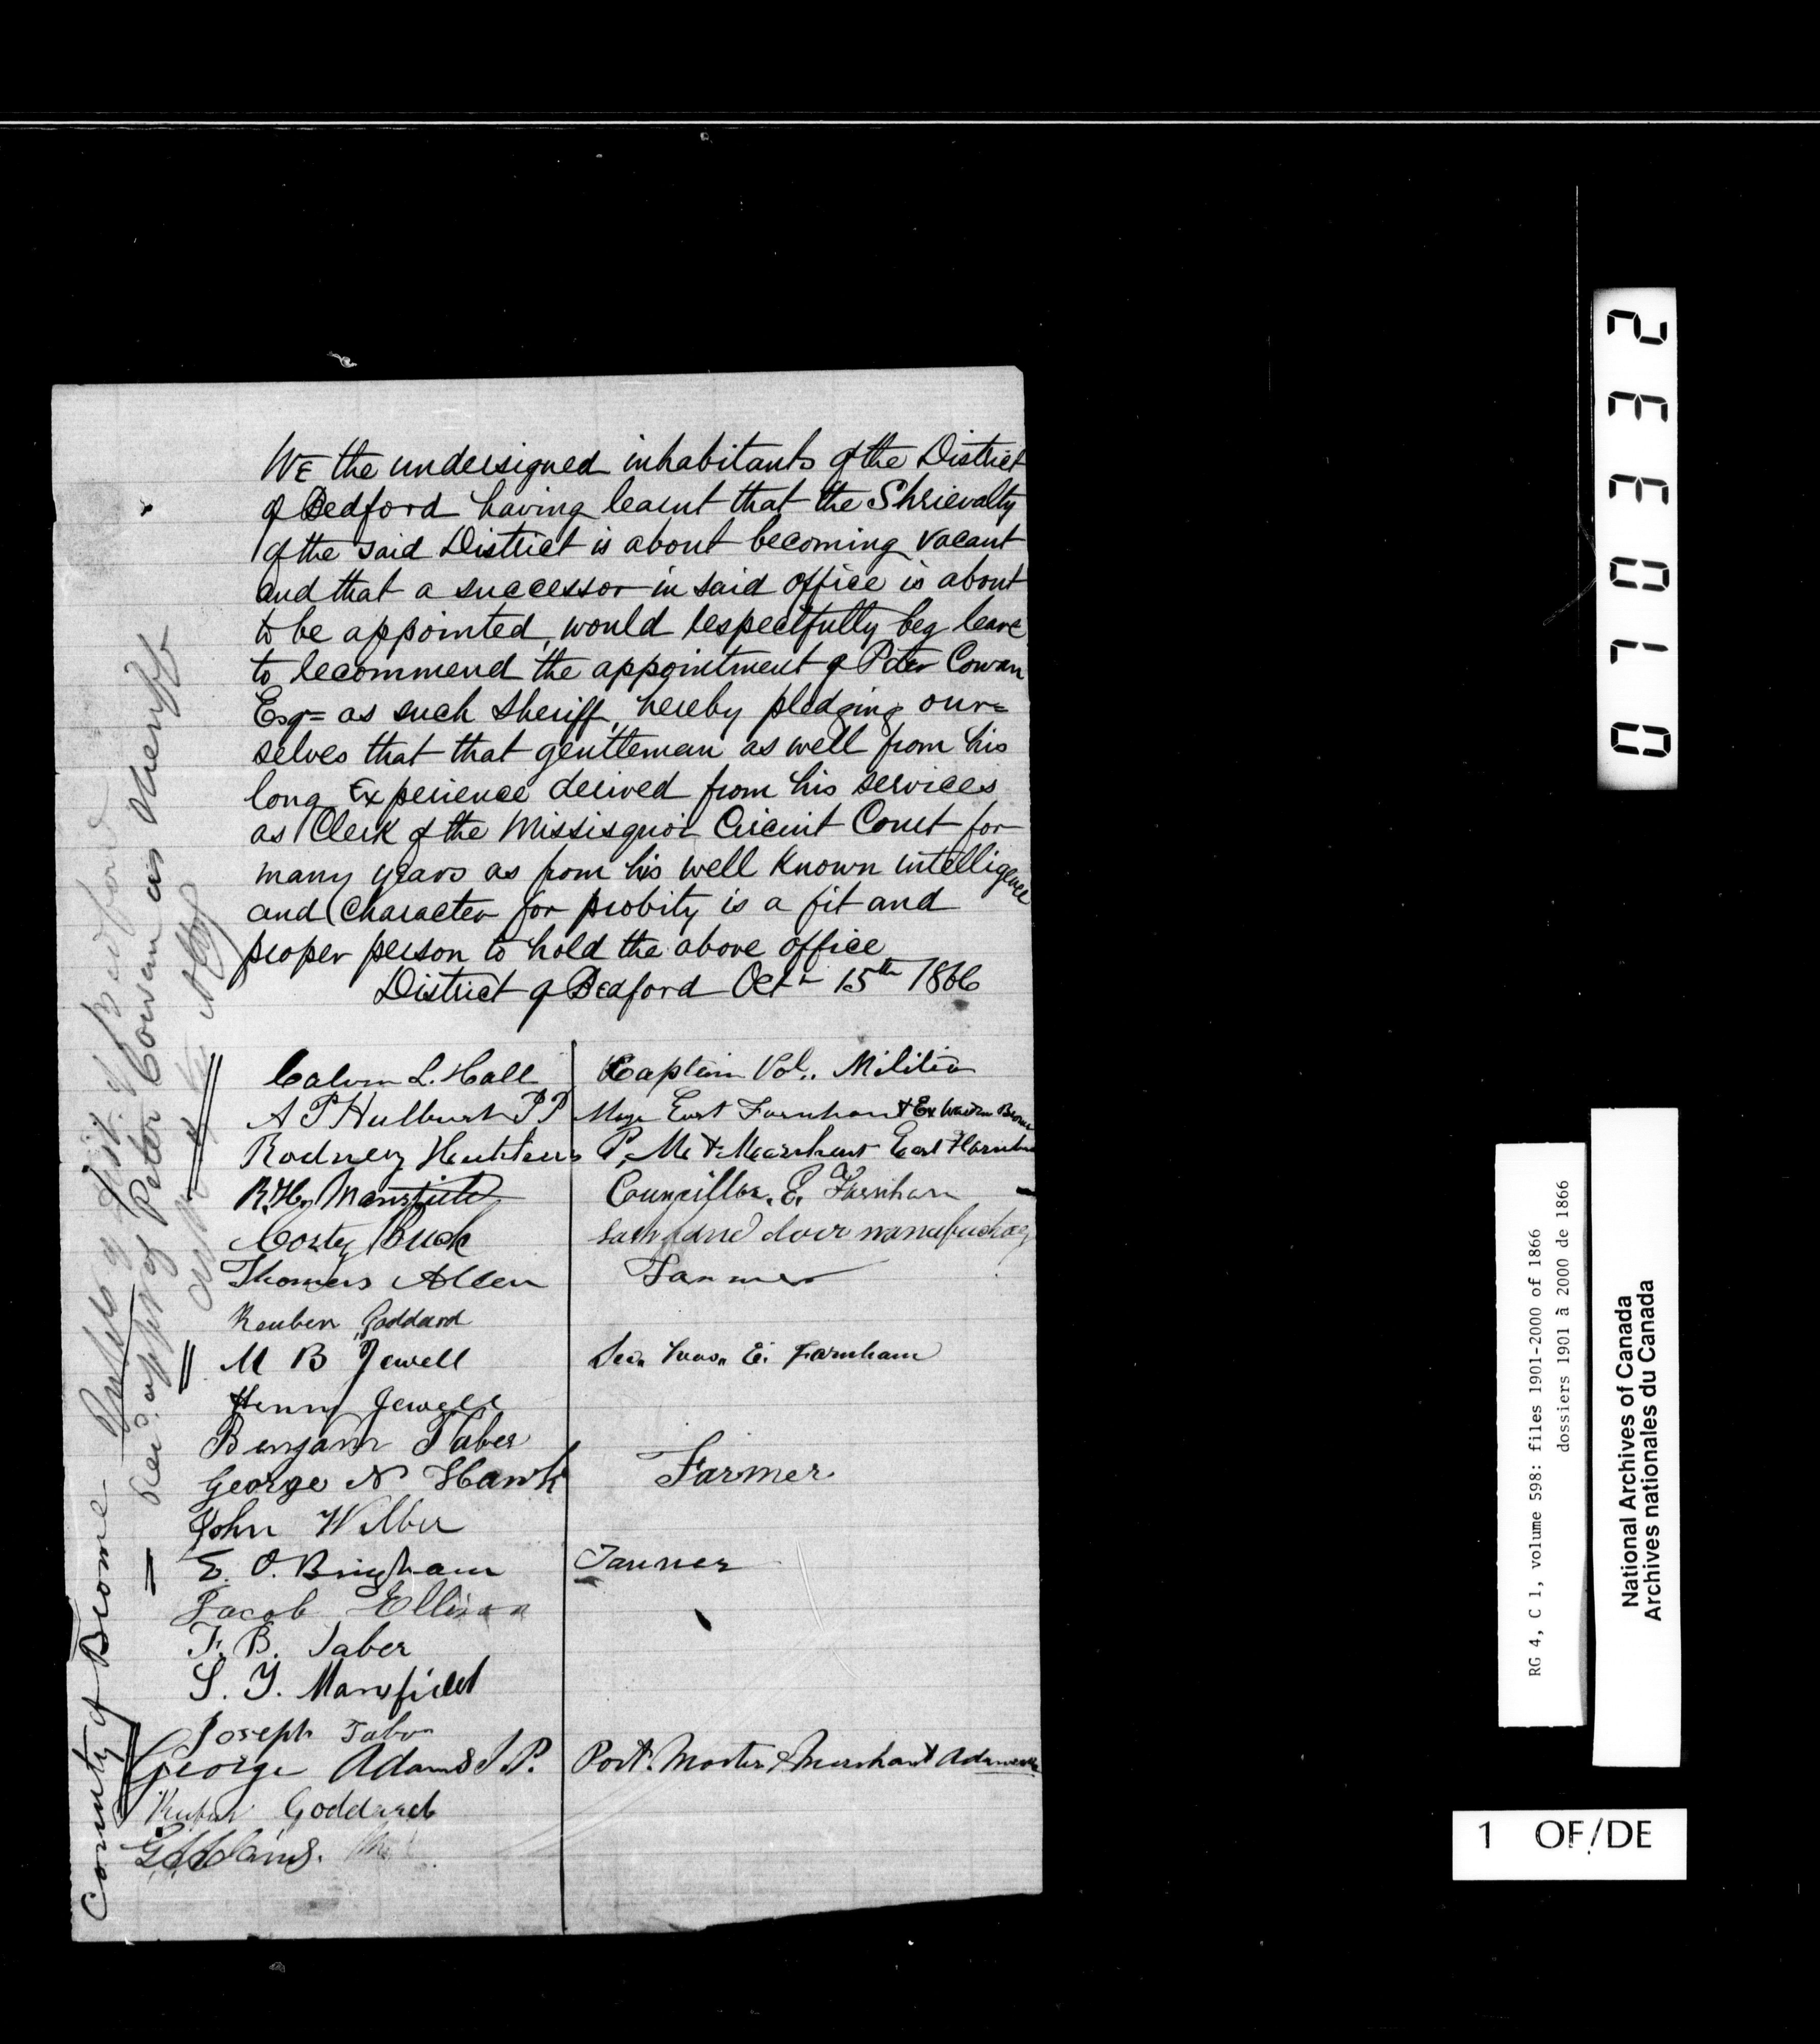 WE the undersigned inhabitants of the District
of Bedford having learnt that the Shrievalty
of the said District is about becoming vacant
and that a successor in said office is about
to be appointed, would respectfully beg leave
to recommend the appointment of Peter Cowan
Esqr= as such Sheriff, hereby pledging our=
selves that that gentleman as well from his
long Experience derived from his services
as Clerk of the Missisquoi Circuit Court for
many years as from his well known intelligence
and Character for probity is a fit and
proper person to hold the above office
District of Bedford Octr 15th 1866
Calvin L. Hall Captain Vol.. Militia
A P Hulburt JP Mayr East Farnham & Ex Warden Brome
Rodney P. M. & Merchant East Farnham
R. H. Mansfield Councillor. E. Farnham
Buck sash and door
Thomas Allen Farmer
Reuben Goddard
M B Jewell Sec. Treas. E. Farnham
Henry Jewell
Benjamin Taber
George N Hawk Farmer.
John Wilber
E. O. Brigham Tanner
Jacob Ellison
F. B. Taber
S. Y. Mansfield
Joseph Tabor
George Adams J.P. Post. Master & Merchant
Goddard
County of Brome
Dist. of Bedford
Rec'd appt. of Peter Cowan as Sheriff
0710332
RG 4, C 1, volume 598: files 1901-2000 of 1866
dossiers 1901 à 2000 de 1866
National Archives of Canada
Archives nationales du Canada
1 OF/DE